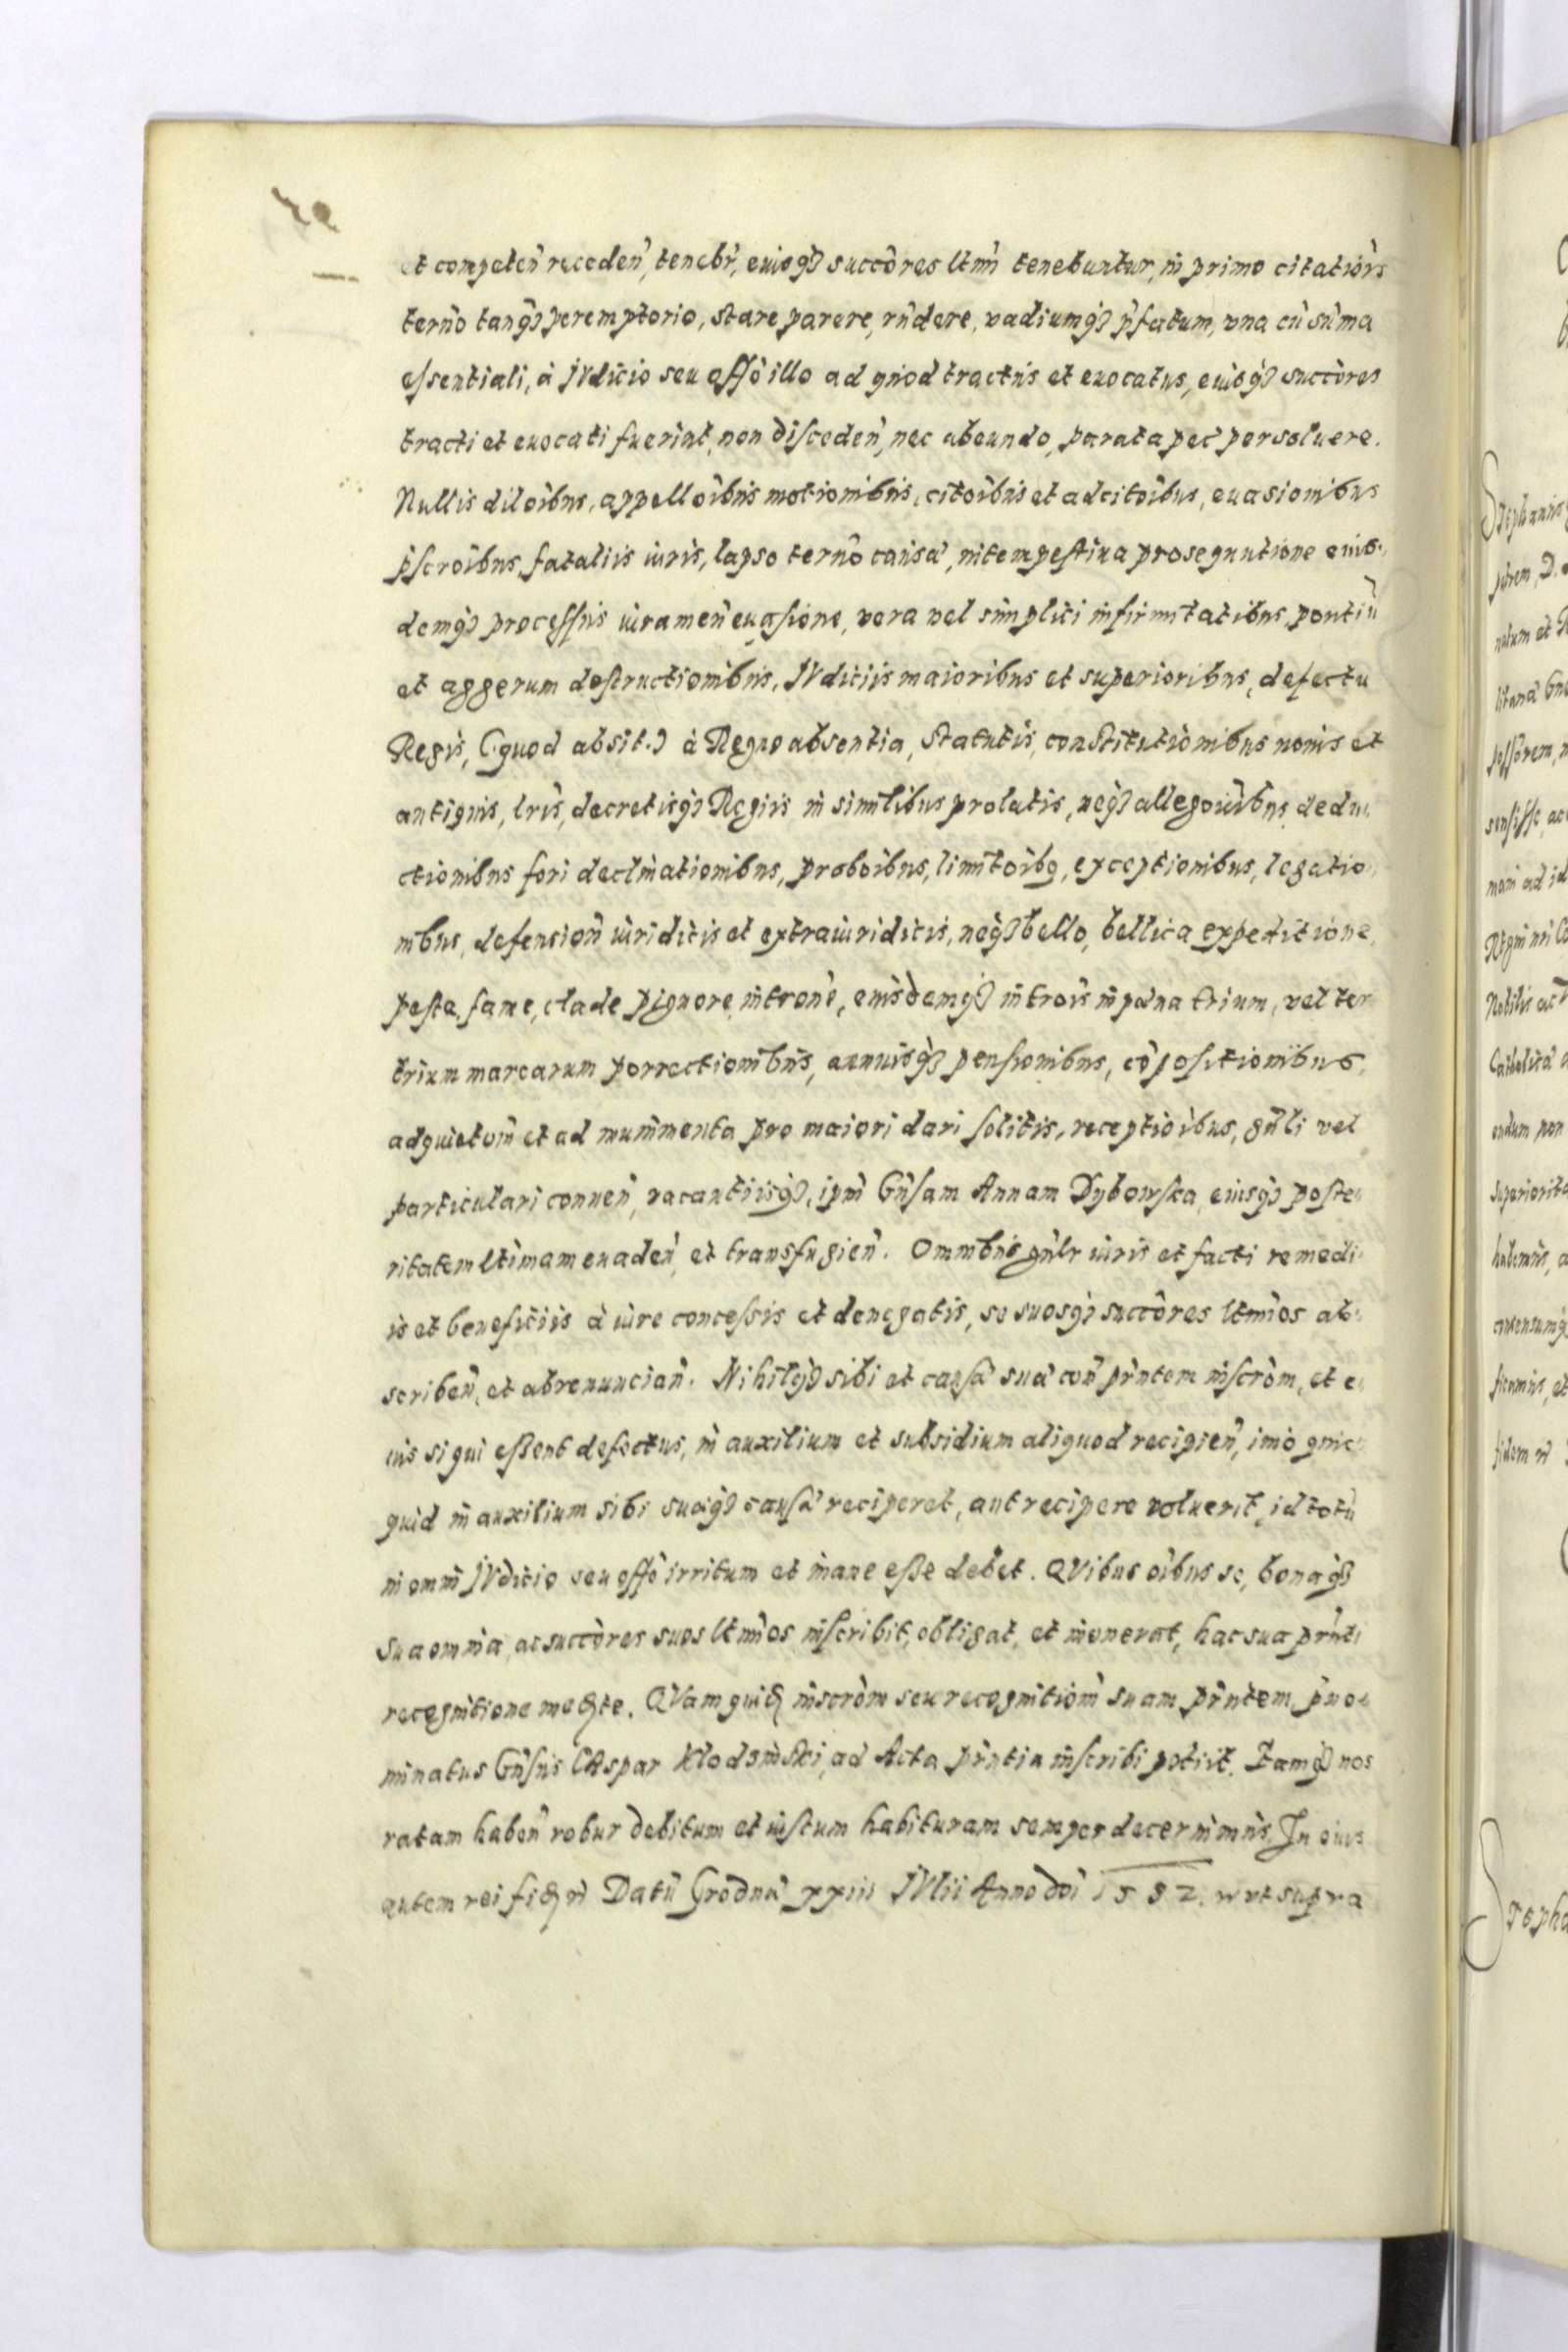 et competen̄ receden̄, tenebr̄, eiusq3 succ̄ores ltmi tenebuntur, in primo citatiōis
term̄o tanq3 peremptorio, stare parere, rn̄dere, vadiumq3 p̄fatum, vna cū sum̄a
essentiali, à JVdicio seu offō illo ad quod tractus et euocatus, eiusq3 succōres
tracti et euocati fuerint, non disceden̄, nec abeundo, parata pec̄ persoluere.
Nullis dilōibus, appellōibus motionibus, citōibus et adcitōibus, euasionibus
p̄scrōibus, fataliis iuris, lapso term̄o causā, intempestiua prosequutione eius-
demq3 processus iuramen̄ euasione, vera vel simplici infirmitatibus, pontiū
et aggerum destructionibus, JVditiis maioribus et superioribus, defectu
Regis, (quod absit.) à Regno absentia, Statutis, constitutionibus nouis et
antiquis, lr̄is, decretisq3 Regiis in similibus prolatis, neq3 allegōibus, dedu
ctionibus fori declinationibus, probōibus, limitōibq, exceptionibus, legatio
nibus, defension̄ iuridicis et extraiuridicis, neq3 bello, bellica expeditione,
peste, fame, clade pignore, intron̄e, eiusdemq3 intrōis in pœna trium, vel ter
trium marcarum porrectionibus, annuisq3 pensionibus, cōpositionibus,
ad quietom̄ et ad munimenta pro maiori dari solitis, receptiōibus, gn̄li vel
particulari conuen̄, vacantiisq3, ipm̄ Gn̄sam Annam Dybowska, eiusq3 poste
ritatem ltimam euaden̄ et transfugien̄. Omnibus gn̄lr iuris et facti remedi
is et beneficiis à iure concessis et denegatis, se suosq3 succōres ltmīos ab
scriben̄, et abrenuncian̄. Nihilq3 sibi et causā suā con̄ prn̄tem inscrōm, et e
ius si qui essent defectus, in auxilium et subsidium aliquod recipien̄, imò quic
quid in auxilium sibi suaq3 causā reciperet, aut recipere voluerit, id totū
in omni JVdicio seu offō irritum et inane esse debet. QVibus oībus se, bonaq3
sua omnia, ac succōres suos ltmīos inscribit, obligat, et inonerat, hac sua prn̄ti
recognitione medte. QVam quid inscrōm seu recognitiom̄ suam prn̄tem, p̄no
minatus Gn̄sus CAspar Klodzinski, ad Acta prn̄tia inscribi petiit. Eamq3 nos
ratam haben̄ robur debitum et iustum habituram semper decernimus. In eius
autem rei fid n̄ Datū Grodnæ xxiii JVlii Anno dn̄i 1582. ut supra